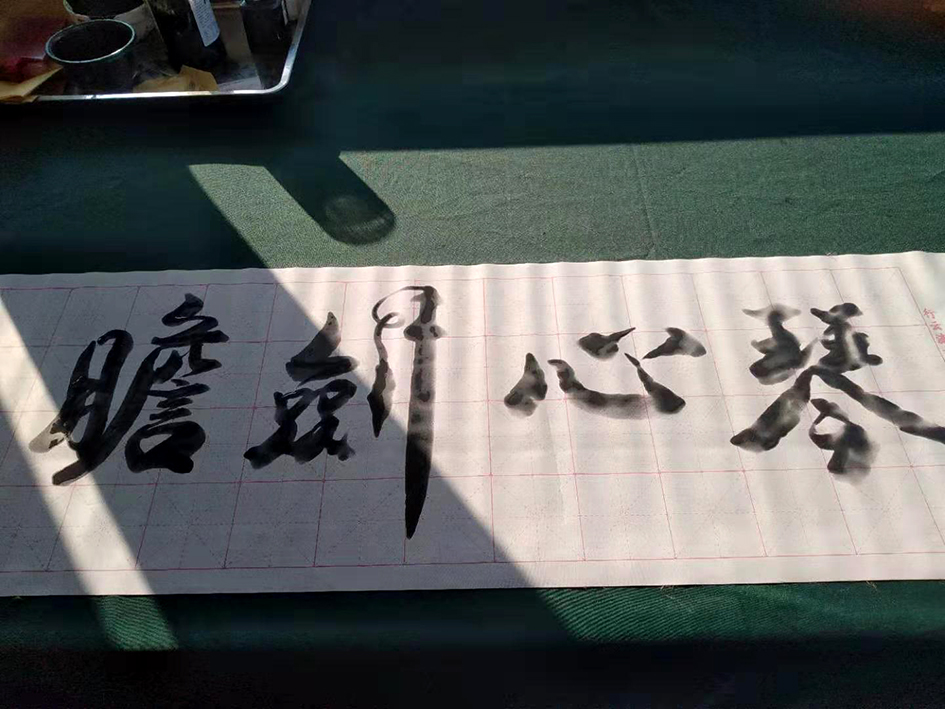 琴心劍膽